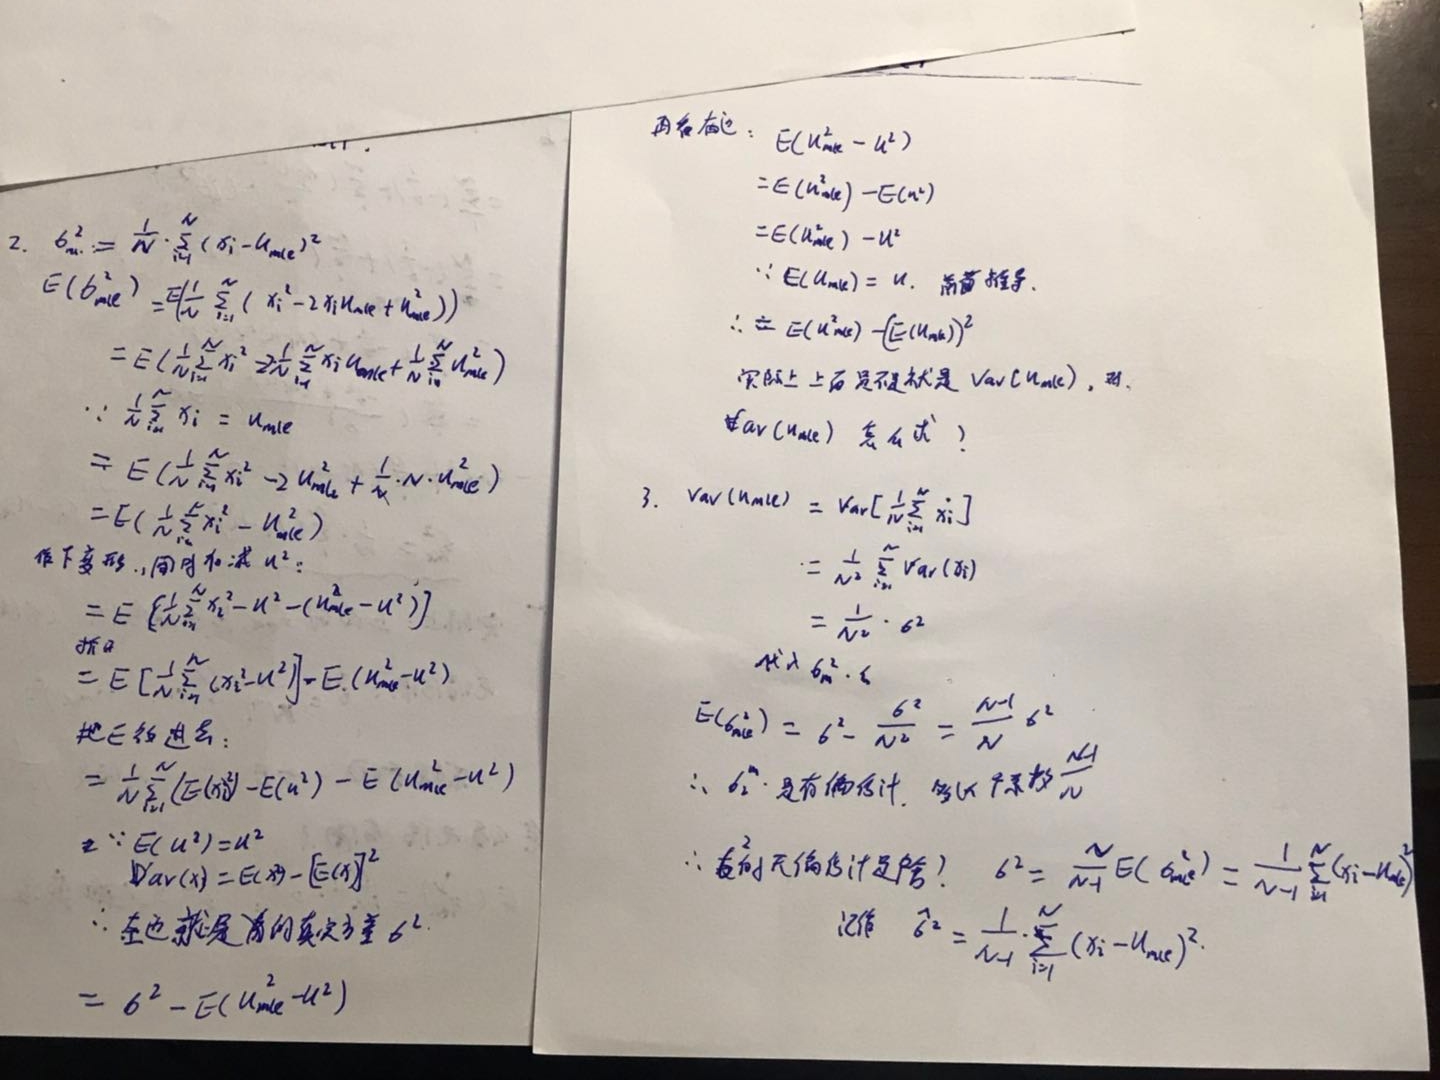 2. σ²ₘ. = 1/N · Σᵢ₌₁ᴺ (xᵢ - uₘₗₑ)²
E(σ²ₘₗₑ) = E(1/N Σᵢ₌₁ᴺ (xᵢ² - 2xᵢuₘₗₑ + u²ₘₗₑ))
= E(1/N Σᵢ₌₁ᴺ xᵢ² - 2 1/N Σᵢ₌₁ᴺ xᵢ uₘₗₑ + 1/N Σᵢ₌₁ᴺ u²ₘₗₑ)
∵ 1/N Σᵢ₌₁ᴺ xᵢ = uₘₗₑ
= E(1/N Σᵢ₌₁ᴺ xᵢ² - 2u²ₘₗₑ + 1/N · N · u²ₘₗₑ)
= E(1/N Σᵢ₌₁ᴺ xᵢ² - u²ₘₗₑ)
作下变形, 同时加减 u²:
= E{1/N Σᵢ₌₁ᴺ xᵢ² - u² - (u²ₘₗₑ - u²)]
拆
= E[1/N Σᵢ₌₁ᴺ (xᵢ² - u²)] - E.(u²ₘₗₑ - u²)
把E 进去:
= 1/N Σᵢ₌₁ᴺ (E(xᵢ²) - E(u²) - E(u²ₘₗₑ - u²)
∵ E(u²) = u²
Var(x) = E(x²) - [E(x)]²
∴ 左边就是 的真实方差 σ².
= σ² - E(u²ₘₗₑ - u²)
再看右边: E(u²ₘₗₑ - u²)
= E(u²ₘₗₑ) - E(u²)
= E(u²ₘₗₑ) - u²
∵ E(uₘₗₑ) = u. 前面推导.
∴ = E(u²ₘₗₑ) - (E(uₘₗₑ))²
实际上上面是不是就是 Var(uₘₗₑ), 对.
Var(uₘₗₑ) 怎么求?
3. Var(uₘₗₑ) = Var[1/N Σᵢ₌₁ᴺ xᵢ]
= 1/N² Σᵢ₌₁ᴺ Var(xᵢ)
= 1/N² · σ²
代入 σ²ₘ.
E(σ²ₘₗₑ) = σ² - σ²/N² = N-1/N σ²
∴ 是有偏估计. 系数 N-1/N
∴ 的无偏估计是啥? σ² = N/N-1 E(σ²ₘₗₑ) = 1/N-1 Σᵢ₌₁ᴺ (xᵢ - uₘₗₑ)²
记作 σ̂² = 1/N-1 · Σᵢ₌₁ᴺ (xᵢ - uₘₗₑ)².